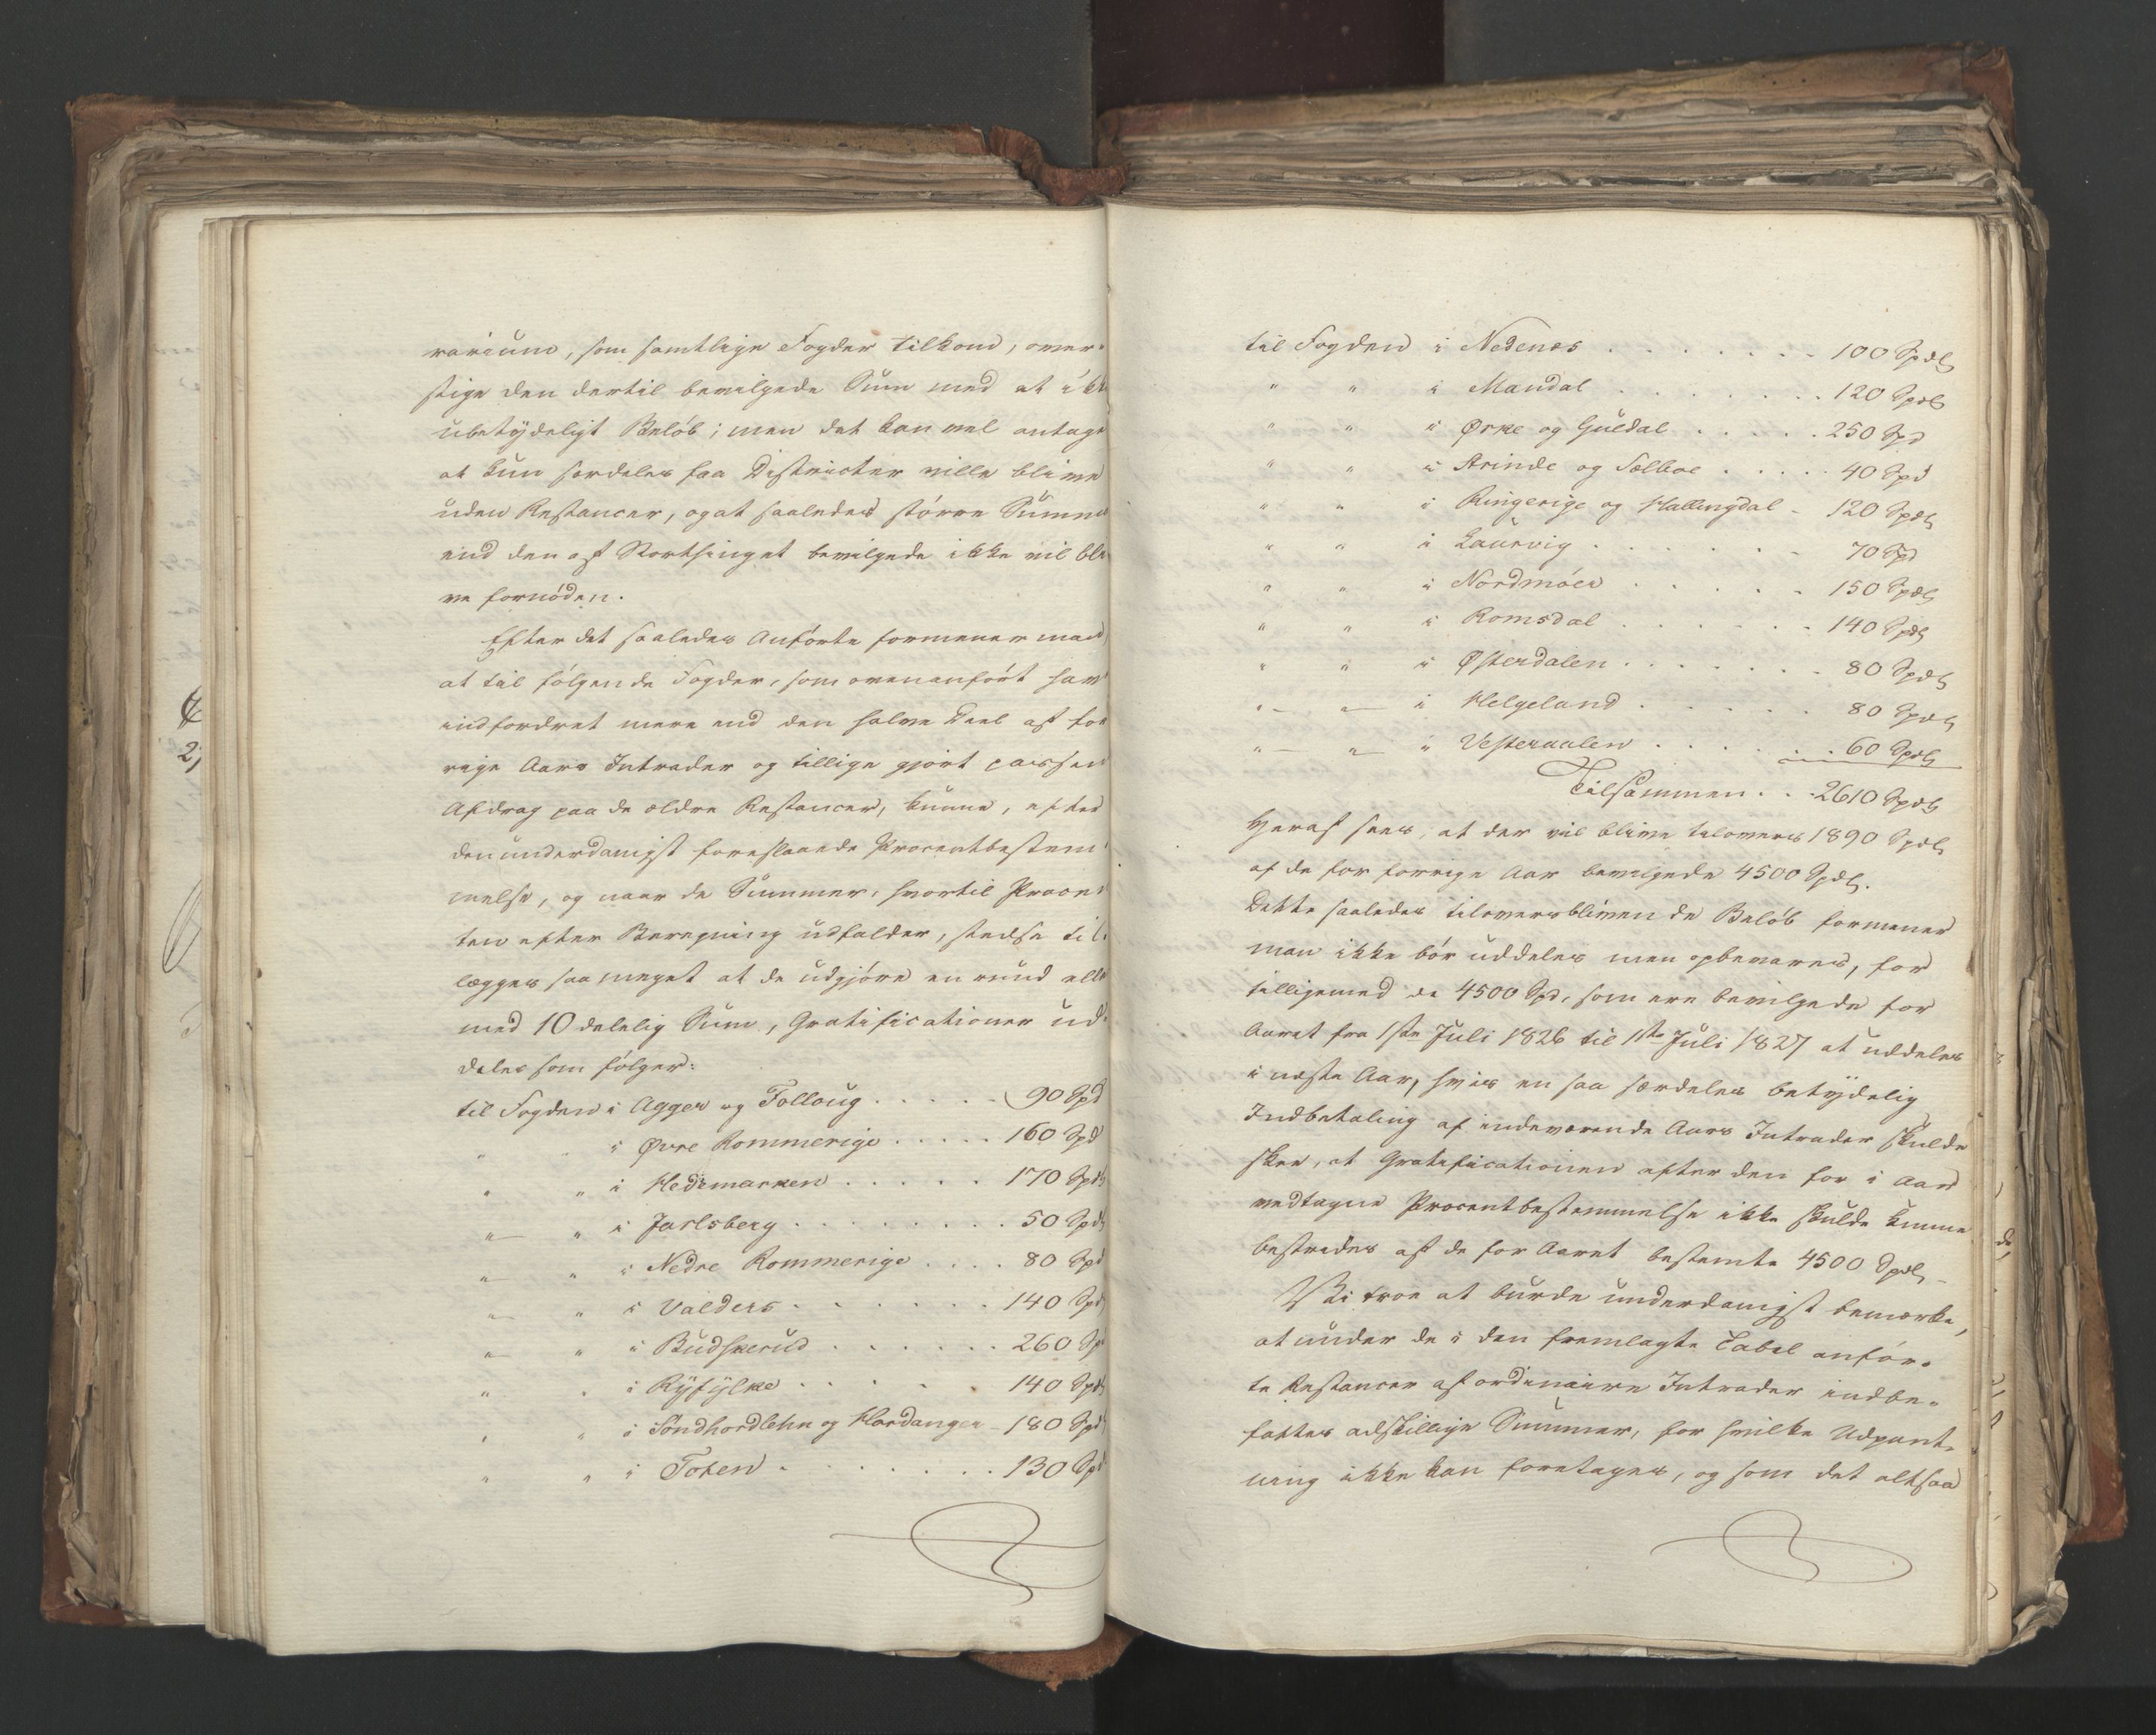 rarium, som samtlige Fogder tilkom, over-
stige den dertil bevilgede Sum med et ikke
ubetydeligt Beløb; men det kan vel antages
at kun særdeles faa Districter ville blive
uden Restancer, og at saaledes større Summe
end den af Storthinget bevilgede ikke vil bli-
ve fornøden.
Efter det saaledes Anførte formener man,
at til følgende Fogder, som ovenanført have
indfordret mere end den halve Deel af for-
rige Aars Intrader og tillige gjort passende
Afdrag paa de ældre Restancer, kunne, efter
den underdanigst foreslaaede Procentbestem-
melse, og naar de Summer, hvortil Procen-
ten efter Beregning udfalder, stedse til-
lægges saa meget at de udgjøre en rund eller
med 10 delelig Sum, Gratificationer ud-
deles som følger:
til Fogden i Agger og Folloug . . . . . 90 Spd
" " i Øvre Rommerige . . . . . 160 Spd
" " i Hedemarken . . . . . 170 Spd
" " i Jarlsberg . . . . . . . . 50 Spd
" " i Nedre Rommerige . . . . 80 Spd
" " i Valders . . . . . . . 140 Spd
" " i Budskerud . . . . . . 260 Sp
" " i Ryfylke . . . . . 140 Spd
" " i Søndhordlehn og Hardanger - 180 Spd
" " i Toten . . . . . . . . 130 Spd
til Fogden i Nedenes . . . . . . . 100 Spdl
" " i Mandal . . . . . . . . 120 Spdl
" " i Ørke og Guldal . . . . . 250 Spd
" " i Strinde og Selboe . . . . . 40 Spd
" " i Ringerige og Hallingdal - 120 Spdl
" " i Laurvig . . . . . . . 70 Spd
" " i Nordmøer . . . . . 150 Spdl
" " i Romsdal . . . . . . 140 Spdl
" " i Østerdalen . . . . . . . 80 Spdl
" " i Helgeland . . . . . 80 Spdl
" " i Vesteraalen . . . . . . 60 Spdl
Tilsammen . . . 2610 Spdl
Heraf sees, at der vil blive tilovers 1890 Spdl
af de for forrige Aar bevilgede 4500 Spdl.
Dette saaledes tiloversblivende Beløb formener
man ikke bør uddeles men opbevares, for
tilligemed de 4500 Spd, som ere bevilgede for
Aaret fra 1ste Juli 1826 til 1ste Juli 1827 at uddeles
i næste Aar, hvis en saa særdeles betydelig
Indbetaling af indeværende Aars Intrader skulde
skee, at Gratificationen efter den for i Aar
vedtagne Procentbestemmelse ikke skulde kunne
bestrides af de for Aaret bestemte 4500 Spdl -
Vi troe at burde underdanigst bemærke,
at under de i den fremlagte Tabel anfør-
te Restancer af ordinaire Intrader indbe-
fattes adskillige Summer, for hvilke Udpant-
ning ikke kan foretages, og som det altsaa